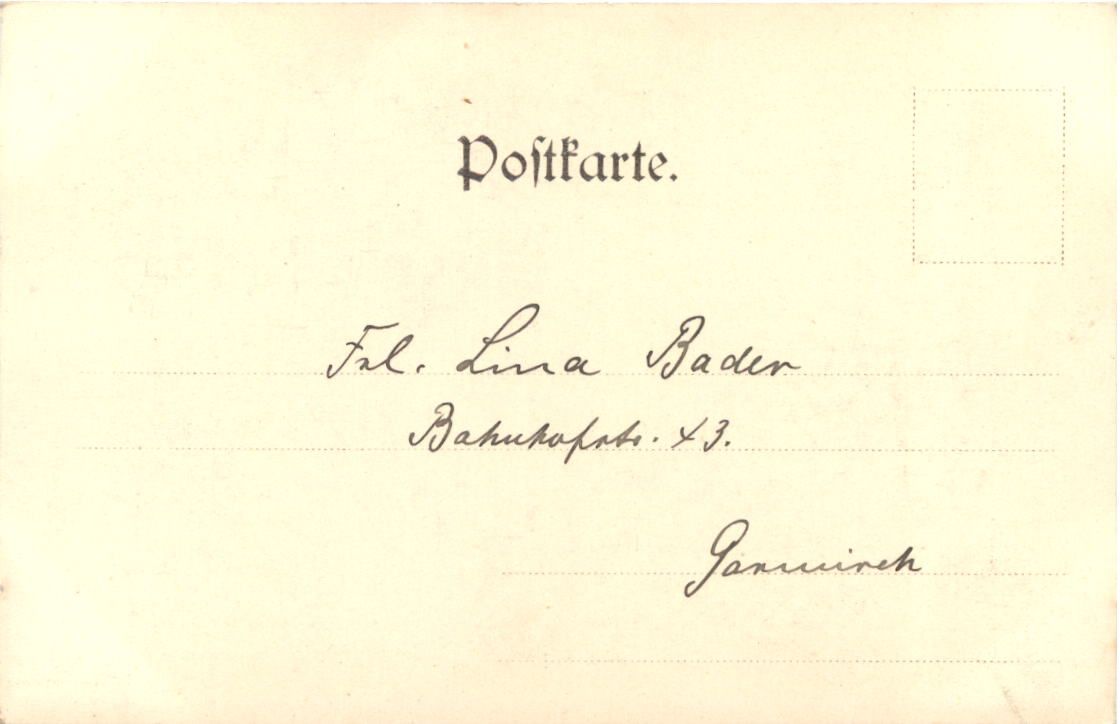 Postkarte.
Frl. Lina Bader
Bahnhofstr. 43.
Garmisch